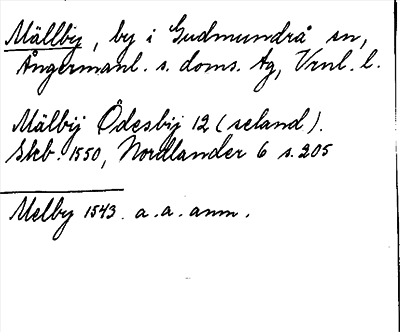 Mällby, by i Gudmundrå sn,
Ångermanl. s. doms. tg, Vrnl. l.
Mälbij Ödesbij 12 (seland).
Skb. 1550, Nordlander 6 s. 205
Melby 1543. a. a. anm.